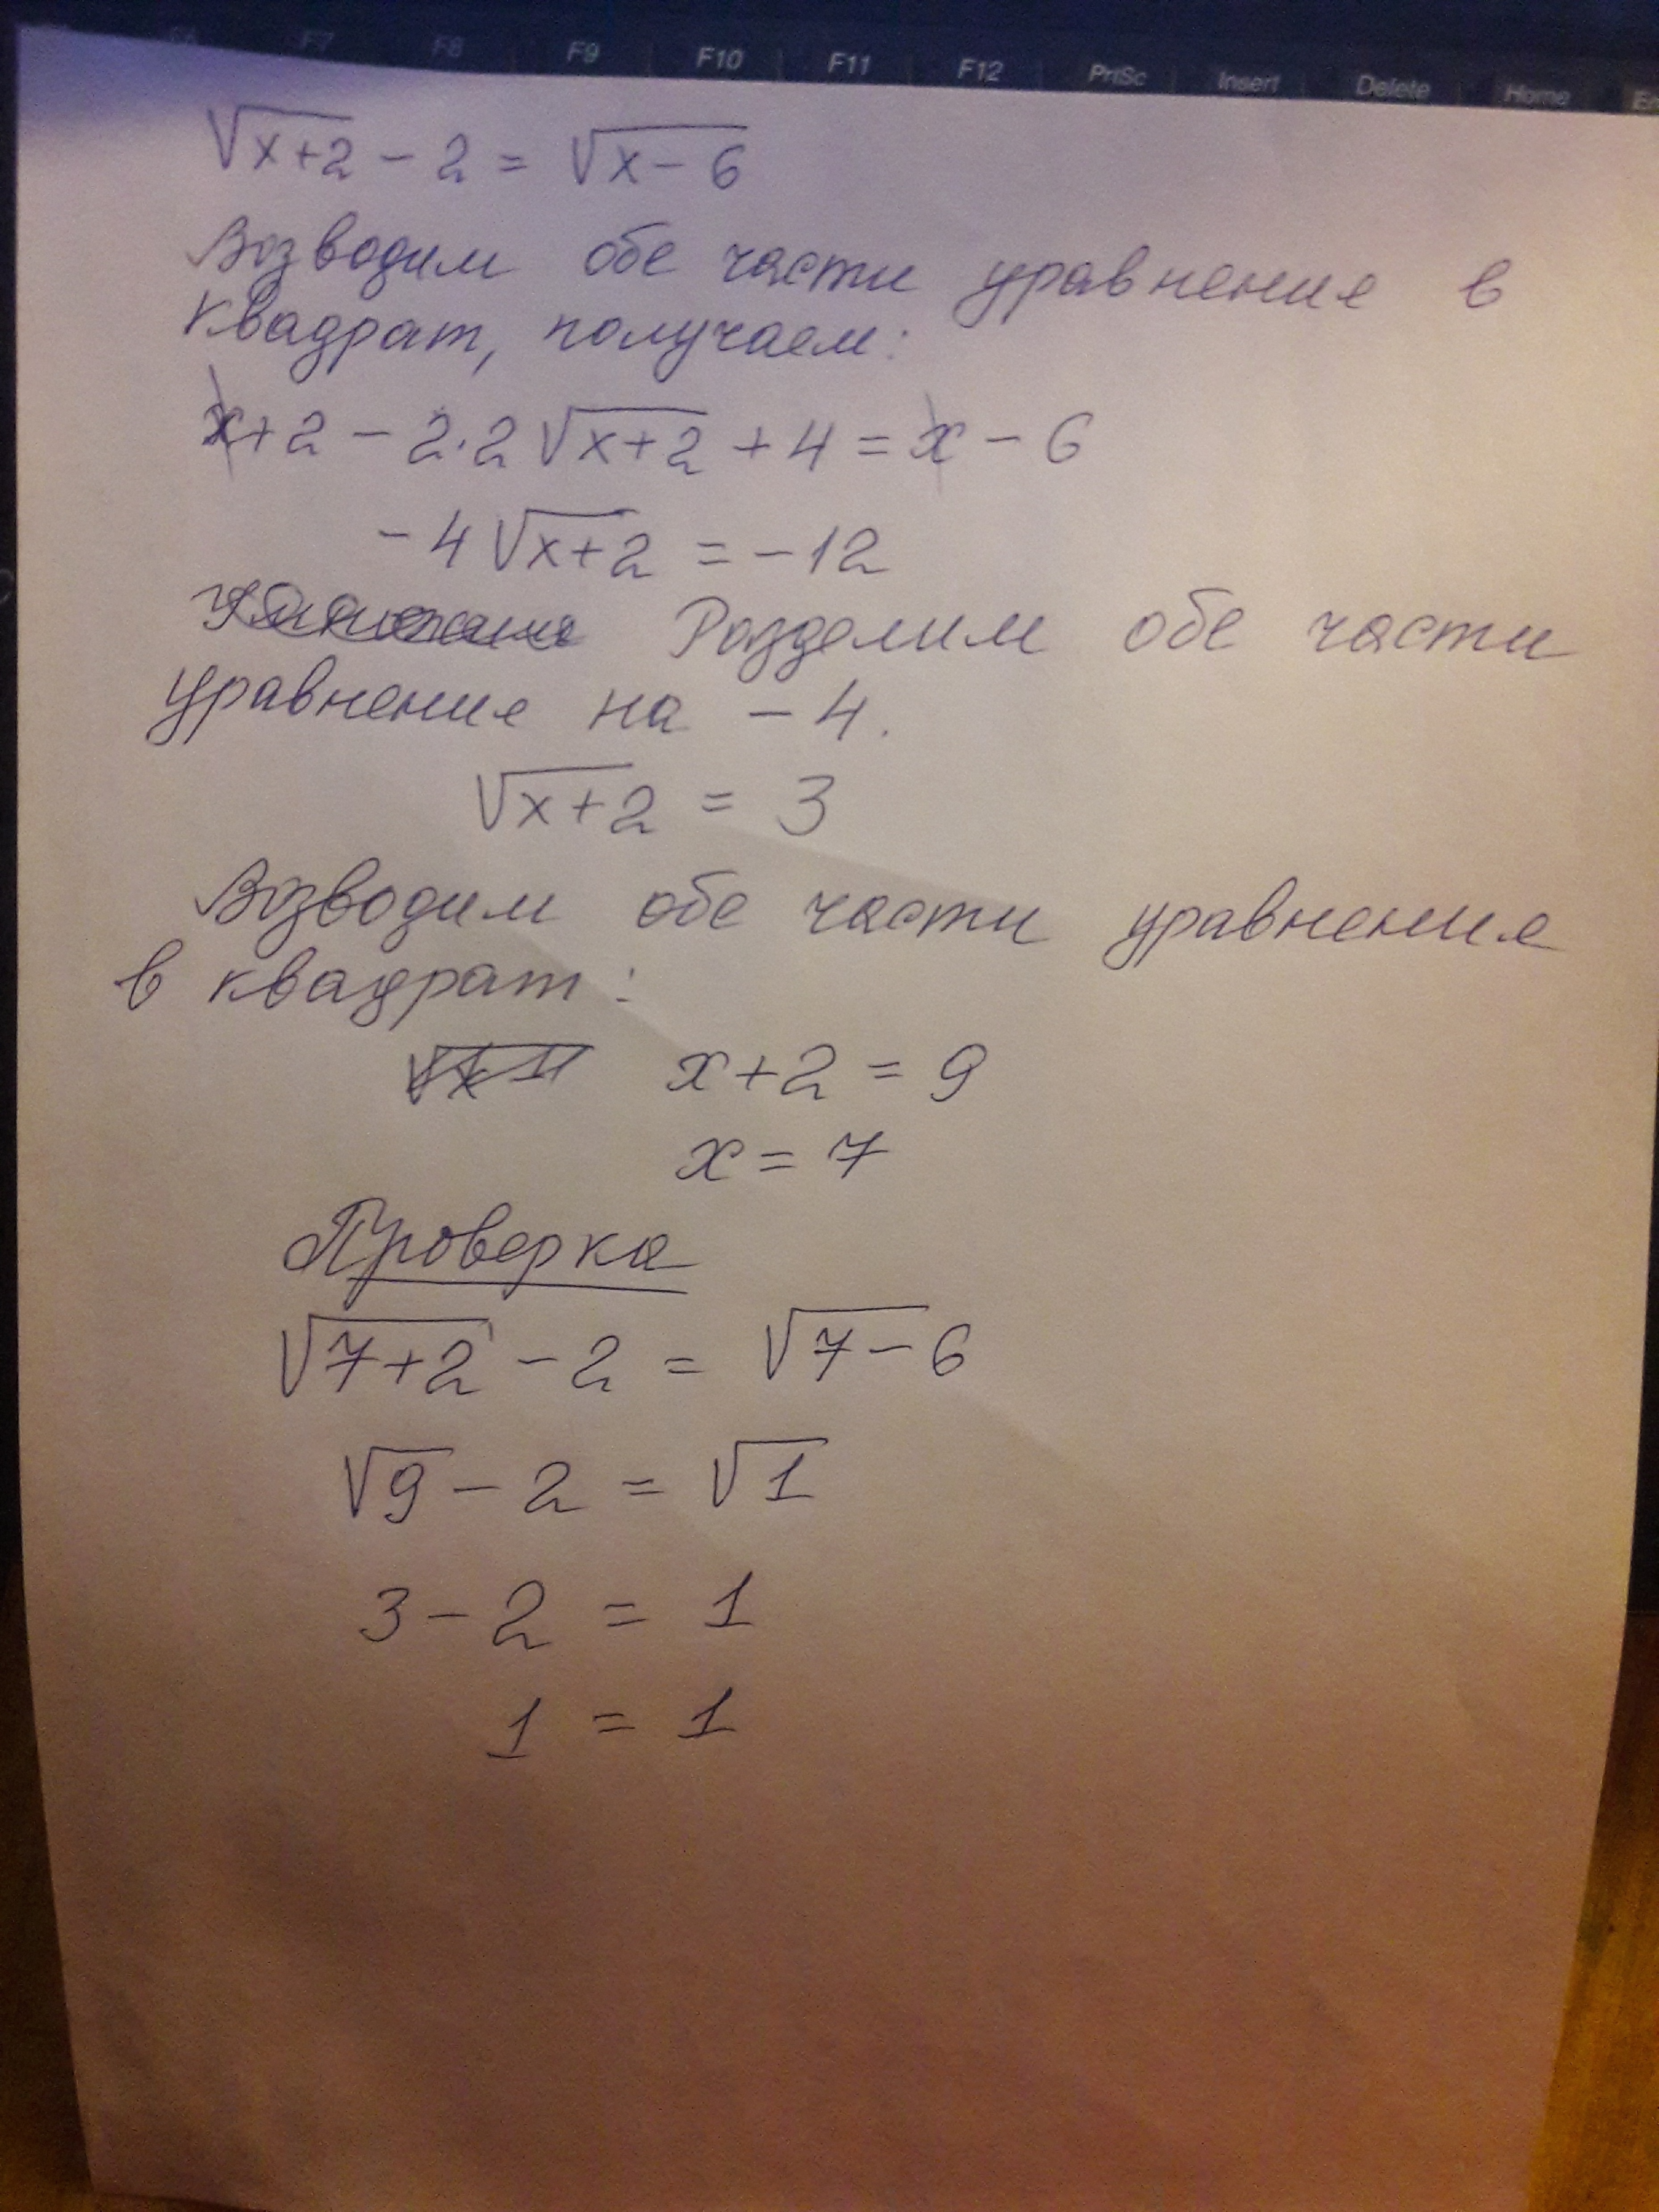 F6 F7 F8 F9 F10 F11 F12 PrtSc Insert Delete Home
√x+2 - 2 = √x-6
Возводим обе части уравнение в
квадрат, получаем:
x+2 - 2·2√x+2 + 4 = x - 6
-4√x+2 = -12
Розделим обе части
уравнение на -4.
√x+2 = 3
Возводим обе части уравнение
в квадрат:
x+2 = 9
x = 7
Проверка
√7+2 - 2 = √7-6
√9 - 2 = √1
3 - 2 = 1
1 = 1